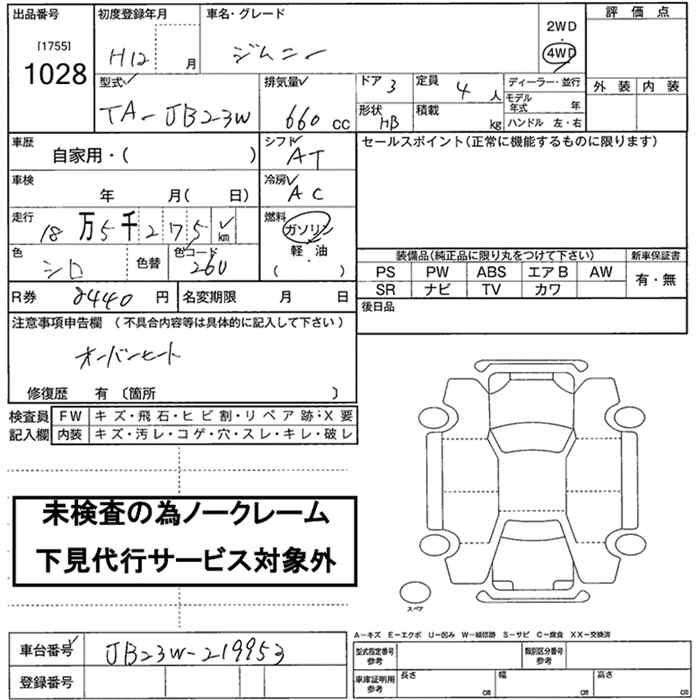 出品番号
[1755]
1028
初度登録年月
H12 月
車名・グレード
ジムニー
2WD
・
4WD
評価点
外装 内装
型式
TA-JB23W
排気量
660 cc
ドア 3
定員 4 人
ディーラー・並行
モデル年式 年
ハンドル 左・右
形状 HB
積載 kg
車歴
自家用・( )
シフト
AT
セールスポイント(正常に機能するものに限ります)
車検
年 月( 日)
冷房
AC
走行
18万5千275 km
燃料
ガソリン
軽・油
( )
色
シロ
色替
色コード
260
装備品(純正品に限り丸をつけて下さい)
新車保証書
PS PW ABS エアB AW
有・無
SR ナビ TV カワ
R券 8440 円
名変期限 月 日
後日品
注意事項申告欄 (不具合内容等は具体的に記入して下さい)
オーバーヒート
修復歴 有〔箇所 〕
検査員
記入欄
FW キズ・飛石・ヒビ割・リペア跡・X要
内装 キズ・汚レ・コゲ・穴・スレ・キレ・破レ
未検査の為ノークレーム
下見代行サービス対象外
スペア
A-キズ E-エクボ U-凹み W-補修跡 S-サビ C-腐食 XX-交換済
車台番号 JB23W-219953
登録番号
型式指定番号
参考
類別区分番号
参考
車庫証明用
参考
長さ cm
幅 cm
高さ cm